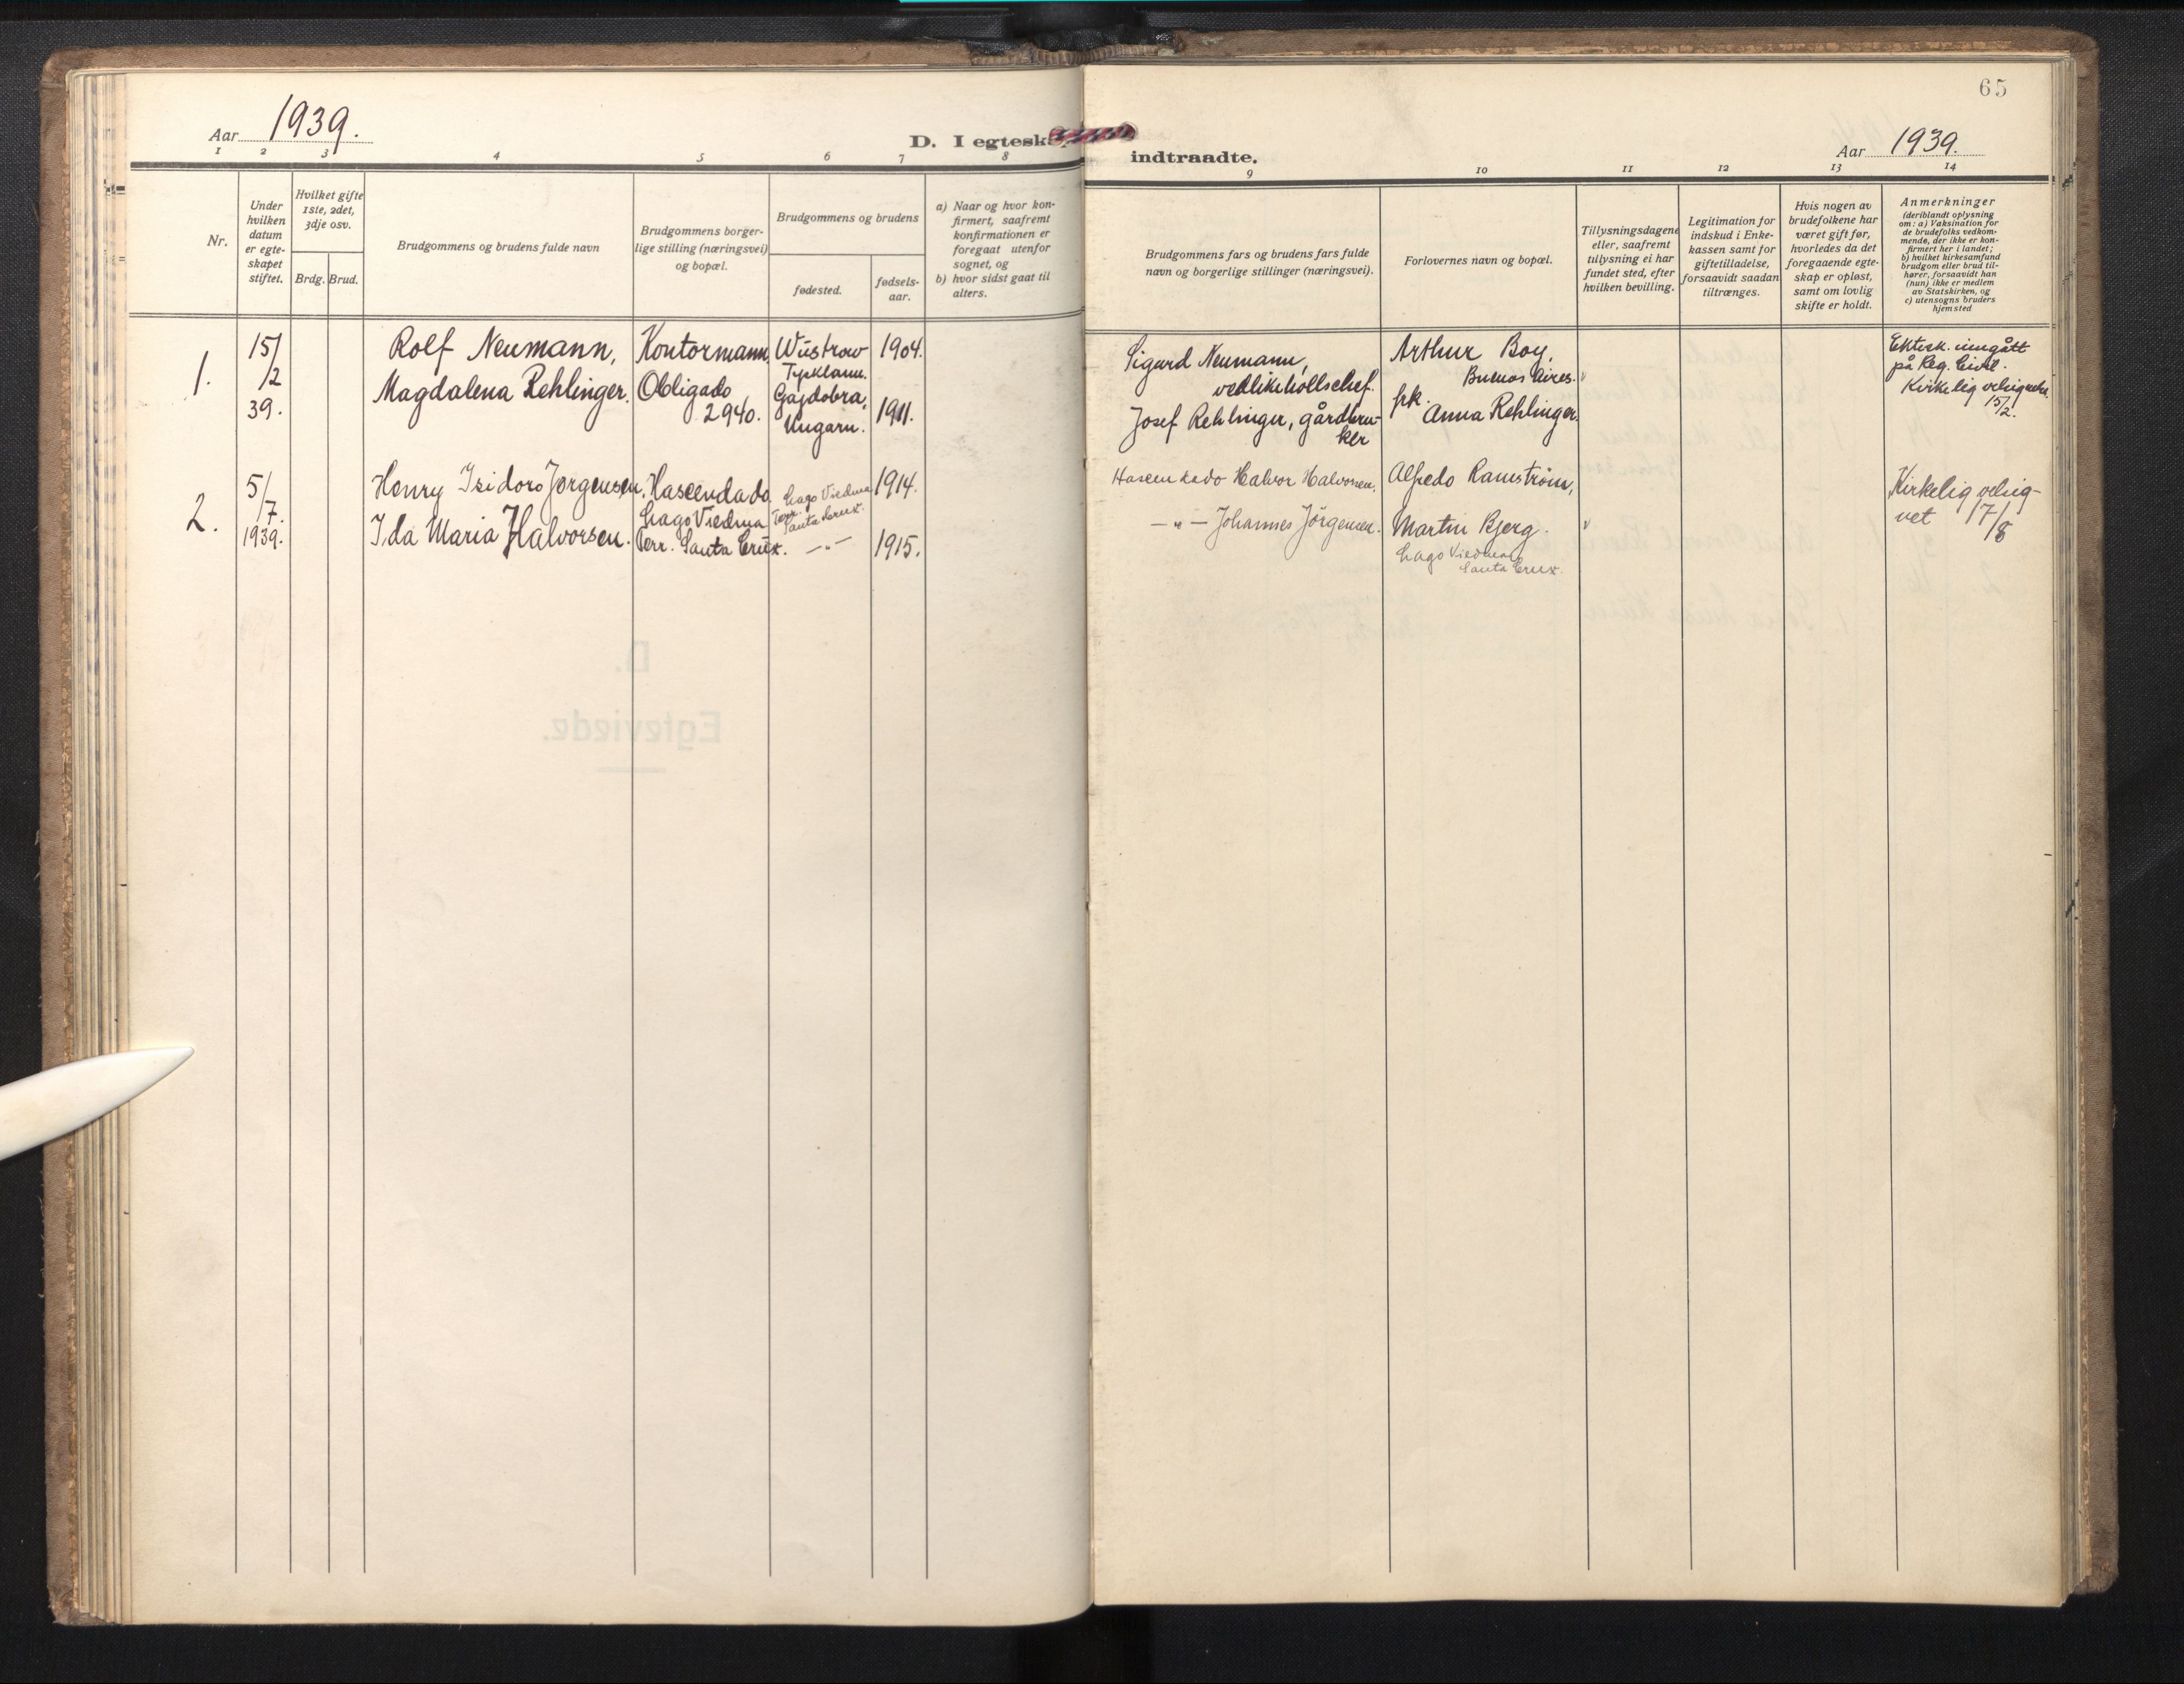 65
Aar 1939.
D. I egteska
indtraadte.
Aar 1939.
1 2 3 4 5 6 7 8
9 10 11 12 13 14
Nr.
Under
hvilken
datum
er egte-
skapet
stiftet.
Hvilket gifte
1ste, 2det,
3dje osv.
Brdg. Brud.
Brudgommens og brudens fulde navn
Brudgommens borger-
lige stilling (næringsvei)
og bopæl.
Brudgommens og brudens
fødested.
fødsels-
aar.
a) Naar og hvor kon-
firmert, saafremt
konfirmationen er
foregaat utenfor
sognet, og
b) hvor sidst gaat til
alters.
Brudgommens fars og brudens fars fulde
navn og borgerlige stillinger (næringsvei).
Forlovernes navn og bopæl.
Tillysningsdagene
eller, saafremt
tillysning ei har
fundet sted, efter
hvilken bevilling.
Legitimation for
indskud i Enke-
kassen samt for
giftetilladelse,
forsaavidt saadan
tiltrænges.
Hvis nogen av
brudefolkene har
været gift før,
hvorledes da det
foregaaende egte-
skap er opløst,
samt om lovlig
skifte er holdt.
Anmerkninger
(deriblandt oplysning
om: a) Vaksination for
de brudefolks vedkom-
mende, der ikke er kon-
firmert her i landet;
b) hvilket kirkesamfund
brudgom eller brud til-
hører, forsaavidt han
(hun) ikke er medlem
av Statskirken, og
c) utensogns bruders
hjemsted
1.
15/
/2
39.
Rolf Neumann,
Magdalena Rehlinger.
Kontormann,
Obligado
2940.
Wüstrow
Tyskland.
Gajdobra,
Ungarn.
1904.
1911.
Sigurd Neumann,
vedlikeholdschef.
Josef Rehlinger, gårdbru-
ker
Arthur Boy,
Buenos Aires.
frk.
Anna Rehlinger.
Ektesk. inngått
på Reg. Civil.
Kirkelig velsignede
15/2.
2.
5/
/7.
1939.
Henry Isidoro Jørgensen,
Ida Maria Halvorsen.
Hascendado
Lago Viedma
Terr. Santa Cruz.
Lago Viedma
Terr.
Santa Cruz.
—"—
1914.
1915.
Hasendado Halvor Halvorsen.
—"— Johannes Jørgensen.
Alfredo Ramström,
Martin Bjerg.
Lago Viedma
Santa Cruz.
Kirkelig velsig-
net 17/8